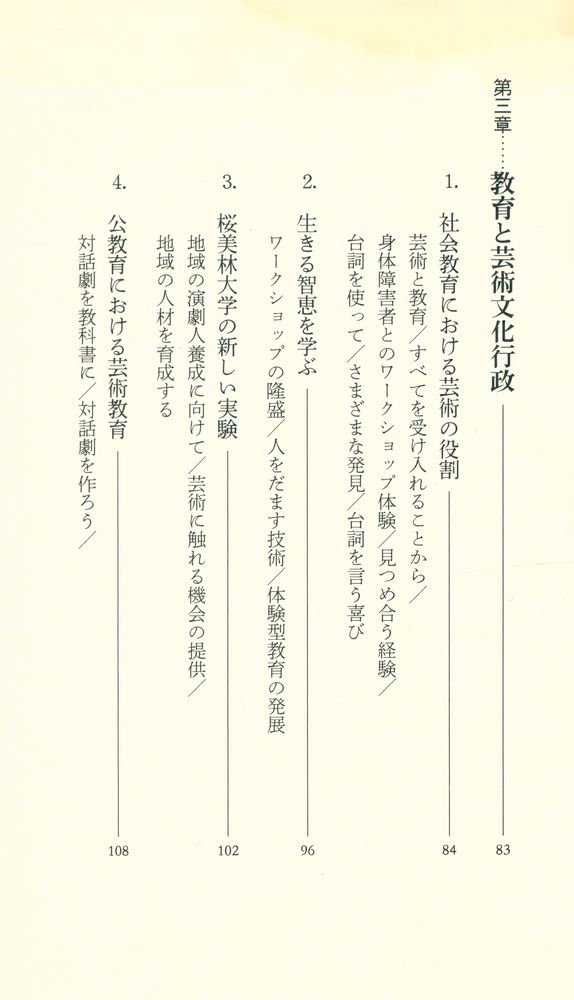 第三章……教育と芸術文化行政 83
1. 社会教育における芸術の役割 84
芸術と教育／すべてを受け入れることから／
身体障害者とのワークショップ体験／見つめ合う経験／
台詞を使って／さまざまな発見／台詞を言う喜び
2. 生きる智恵を学ぶ 96
ワークショップの隆盛／人をだます技術／体験型教育の発展
3. 桜美林大学の新しい実験 102
地域の演劇人養成に向けて／芸術に触れる機会の提供／
地域の人材を育成する
4. 公教育における芸術教育 108
対話劇を教科書に／対話劇を作ろう／